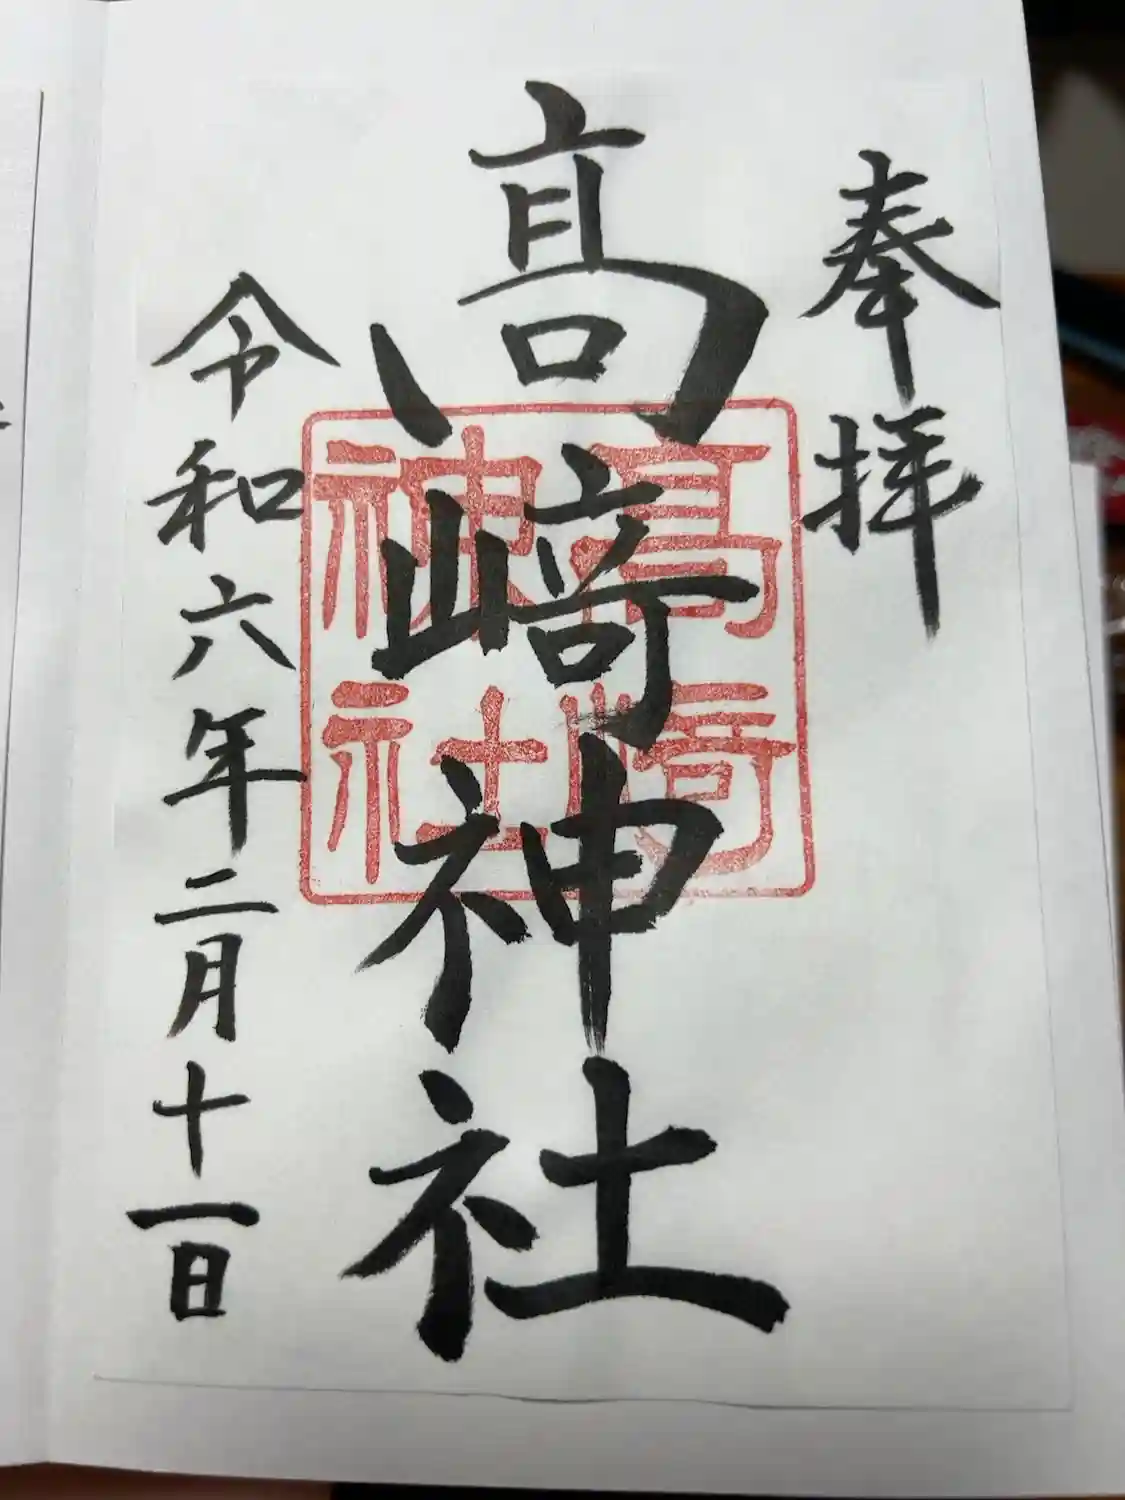 奉拝
髙﨑神社
髙﨑
神社
令和六年二月十一日